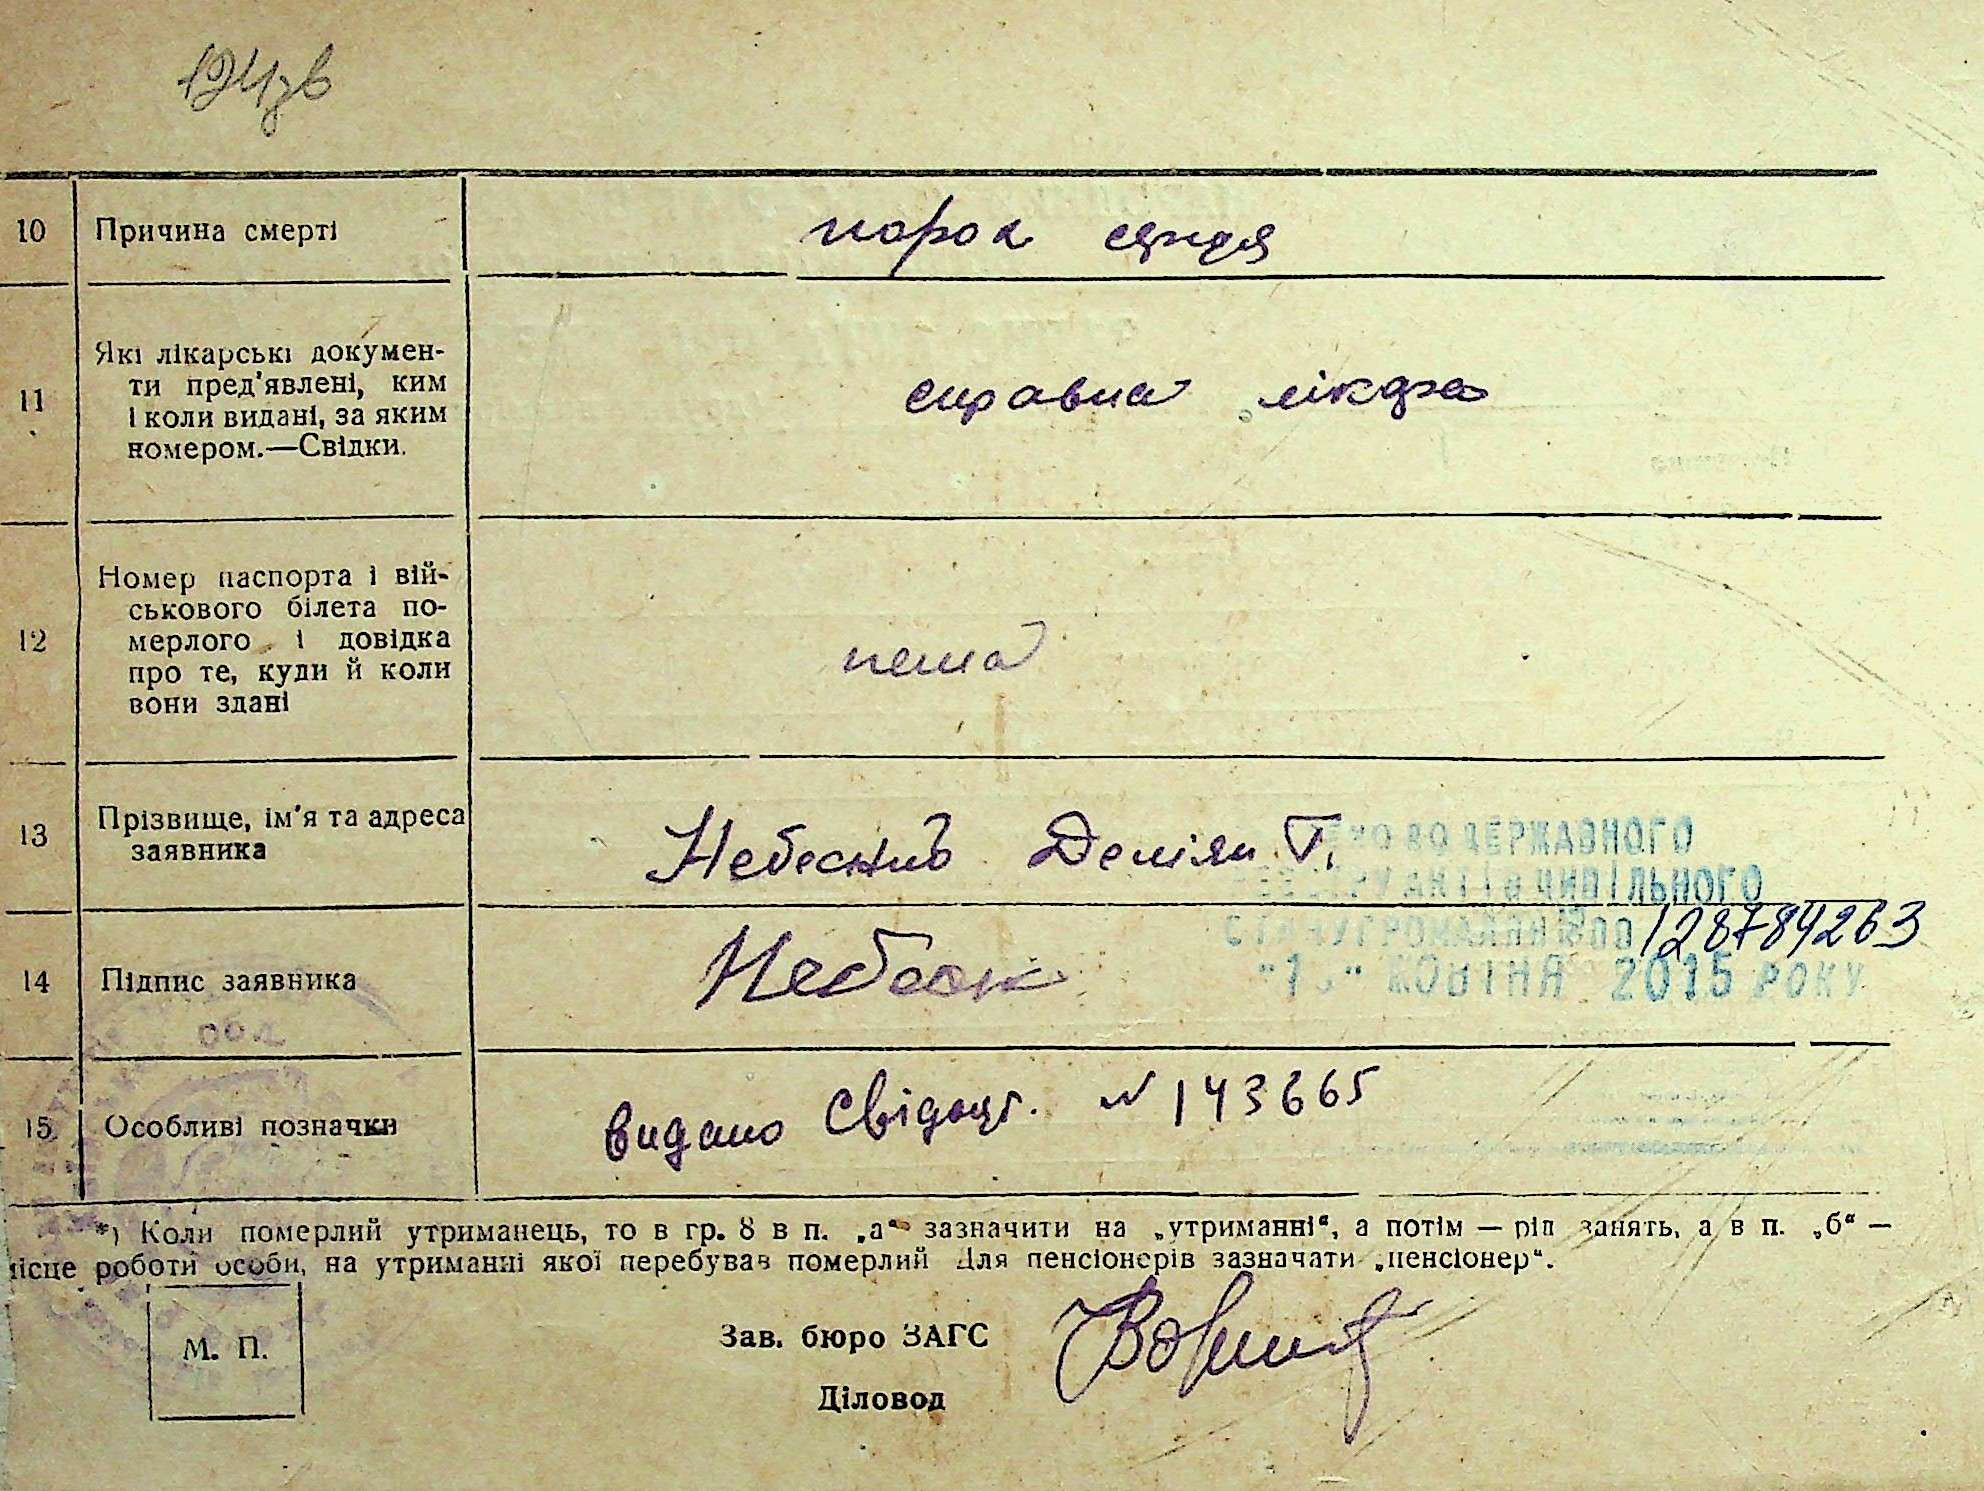 10 Причина смерті порок серця
11 Які лікарські докумен-
ти пред'явлені, ким
і коли видані, за яким
номером.—Свідки.
справка лікаря
12 Номер паспорта і вій-
ськового білета по-
мерлого і довідка
про те, куди й коли
вони здані
нема
13 Прізвище, ім'я та адреса
заявника
Небесний Деміян Т.
ДО ДЕРЖАВНОГО
ЦИВІЛЬНОГО
СТАНУ ГРОМАДЯН 128784263
КОВТНЯ 2015 РОКУ
14 Підпис заявника
обл
15 Особливі позначки видано Свідоцт. № 143665
*) Коли померлий утриманець, то в гр. 8 в п. „а" зазначити на „утриманні", а потім — рід занять, а в п. „б" —
місце роботи особи, на утриманні якої перебував померлий Для пенсіонерів зазначати „пенсіонер".
М. П.
Зав. бюро ЗАГС
Діловод